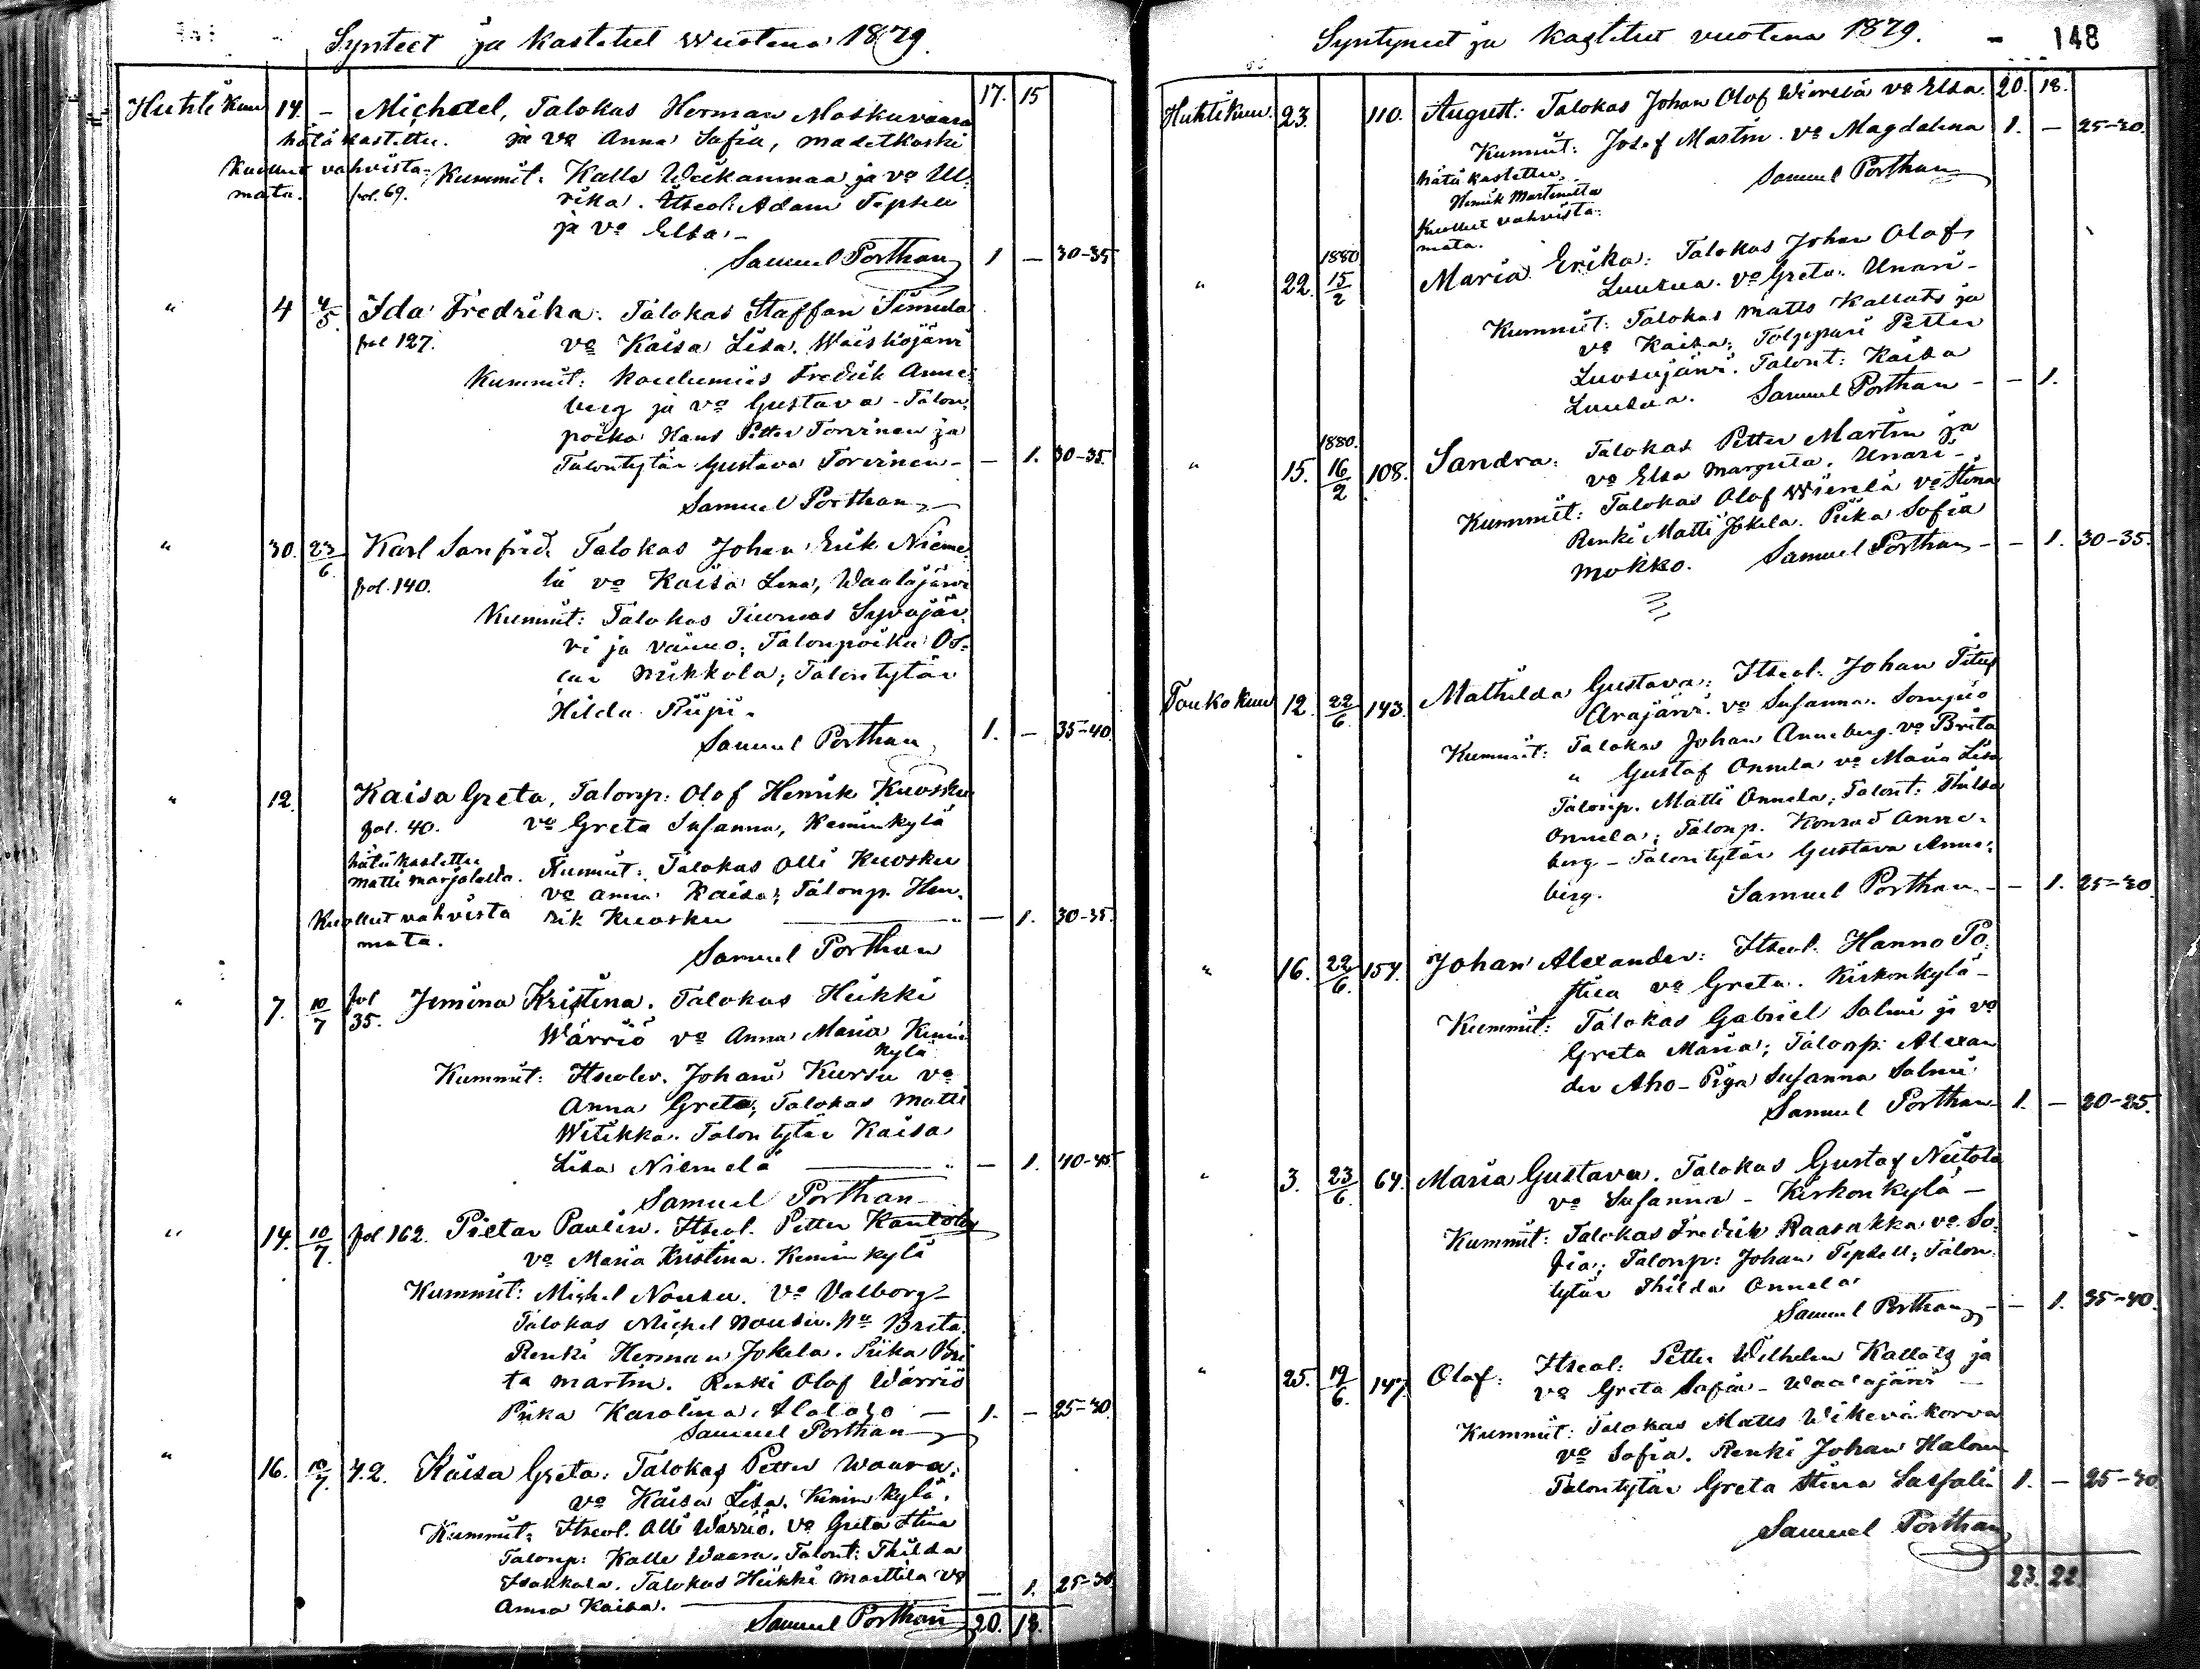 Synteet ja kastetut Wuotena 1879.
17. 15
Huhtikuu 14. - Michael, Talokas Herman Moskuvaara
hätä kastettu. ja vo Anna Sofia, Madetkoski
Kuollut vahvista- Kummit: Kalle Weikanmaa ja vo Ul-
mata. fol. 69. rika. Itseol: Adam Tepsell
ja vo Elsa. -
Samuel Porthan 1 - 30-35
" 4 4/5 Ida Fredrika. Talokas Staffan Timula
fol 127. vo Kaisa Lisa. Waiskojärvi
Kummit: Koulumies Fredrik Anne-
berg ja vo Gustava - Talon-
poika Hans Petter Torvinen ja
Talontytär Gustava Torvinen - - 1. 30-35.
Samuel Porthan
" 30. 23/6 Karl Sanfrid. Talokas Johan Erik Nieme-
fol. 140. lä vo Kaisa Lena, Waalajärvi
Kummit: Talokas Tuomas Syväjär-
vi ja vaimo; Talonpoika Os-
car Mikkola; Talontytär
Hilda Riipi.
Samuel Porthan 1. - 35-40.
" 12. Kaisa Greta, Talonp: Olof Henrik Kuosku
fol. 40. vo Greta Susanna, Keminkylä
hätäkastettu
Matti Marjalalta. Kummit: Talokas Olli Kuosku
vo Anna Kaisa; Talonp. Hen-
Kuollut vahvista rik Kuosku - 1. 30-35.
mata.
Samuel Porthan
" 7. 10/7 fol 35. Jemina Kristina. Talokas Heikki
Wärriö vo Anna Maria Kemin
kylä
Kummit: Itseolev. Johan Kursu vo
Anna Greta; Talokas Matti
Witikka. Talontytär Kaisa
Lisa Niemelä - 1. 40-45
Samuel Porthan
" 14. 10/7. fol 162. Pietar Paulin. Itseol. Petter Kantola
vo Maria Kristina. Keminkylä
Kummit: Michel Nousu. Vo Valborg -
Talokas Michel Nousu. vo Brita.
Renki Herman Jokela. Piika Bri
ta Martin. Renki Olof Wärriö
Piika Karolina Alatalo - 1. - 25-30.
Samuel Porthan
" 16. 10/7. 42. Kaisa Greta: Talokas Petter Waara,
vo Kaisa Lisa. Keminkylä.
Kummit: Itseol. Olli Wärriö. Vo Greta Stina
Talonp: Kalle Waara. Talont: Thilda
Isakkala. Talokas Heikki Marttila vo
Anna Kaisa. - 1. 25-30
Samuel Porthan 20. 18.
Syntyneet ja kastetut vuotena 1879. - 148
20. 18.
Huhtikuu. 23. 110. August: Talokas Johan Olof Wierelä vo Elsa
Kummit: Josef Martin. vo Magdalena 1. - 25-30.
hätä kastettu Samuel Porthan
Henrik Martinilta
Kuollut vahvista-
mata.
" 22. 1880 15/2 Maria Erika: Talokas Johan Olof
Luusua. vo Greta. Unari -
Kummit: Talokas Matts Kallatz ja
vo Kaisa; Tolppari Petter
Luosujärvi. Talont: Kaisa
Luusua. Samuel Porthan - - 1.
" 15. 1880. 16/2 108. Sandra: Talokas Petter Martin ja
vo Elsa Margreta. Unari -
Kummit: Talokas Olof Wierelä vo Stina
Renki Matti Jokela. Piika Sofia
Mokko. Samuel Porthan - - 1. 30-35.
Toukokuu 12. 22/6. 143. Mathilda Gustava: Itseol. Johan Titus
Arajärvi. vo Susanna. Sompio
Kummit: Talokas Johan Anneberg. vo Brita
" Gustaf Onnela vo Maria Lisa
Talonp. Matti Onnela; Talont: Thilda
Onnela; Talonp. Konrad Anne-
berg - Talontytär Gustava Anne-
berg. Samuel Porthan. - - 1. 25-30
" 16. 22/6. 154. Johan Alexander: Itseol. Hanno Po-
stila vo Greta. Kirkonkylä -
Kummit: Talokas Gabriel Salmi ja vo
Greta Maria; Talonp: Alexan
der Aho - Piga Susanna Salmi
Samuel Porthan 1. - 20-25.
" 3. 23/6 64. Maria Gustava. Talokas Gustaf Neitola
vo Susanna - Kirkonkylä -
Kummit: Talokas Fredrik Raasakka vo So-
fia; Talonp: Johan Tepsell; Talon-
tytär Thilda Onnela
Samuel Porthan - - 1. 35-40.
" 25. 19/6. 147. Olof: Itseol: Petter Wilhelm Kallatz ja
vo Greta Sofia - Waalajärvi -
Kummit: Talokas Matts Wikeväkorva
vo Sofia. Renki Johan Halonen
Talontytär Greta Stina Sassali 1. - 25-30
Samuel Porthan
23. 22.